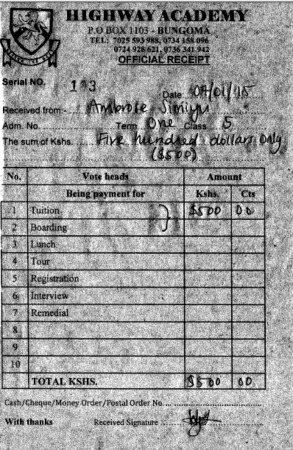 HIGHWAY ACADEMY
P.O BOX 1103 - BUNGOMA
TEL: 7025 593 988, 0734 158 096
0724 928 621, 0736 341 942
OFFICIAL RECEIPT
Serial NO. 193
Date 04/01/15
Received from:- Ambrose Simiyu
Adm. No. Term One Class 5
The sum of Kshs. Five hundred dollars Only
($500)
No. Vote heads Amount
Being payment for Kshs. Cts
1 Tuition $500 00
2 Boarding
3 Lunch
4 Tour
5 Registration
6 Interview
7 Remedial
8
9
10
TOTAL KSHS. $500 00
Cash/Cheque/Money Order/Postal Order No.
With thanks Received Signature